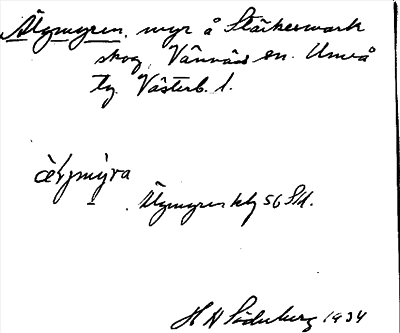 Älgmyren, myr å Stärkesmark
skog, Vännäs sn. Umeå
tg. Västerb. l.
Älgmyren klj 56 Sid.
H N Söderberg 1934